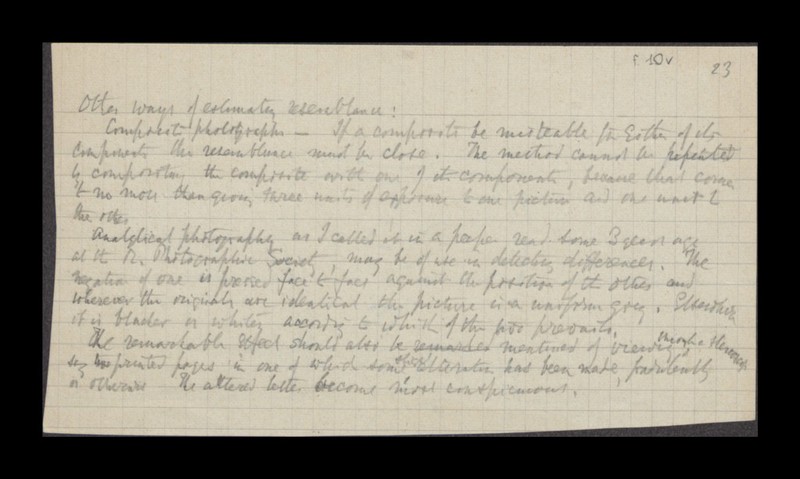 f. 10v
23
Other ways of estimating resemblance:
Composite photographs — If a composite be misteable for Either of its
components the resemblance must be close. The method cannot be repeated
by compositing the composite with one of its components, because that comes
to no more than giving three units of exposure to one picture and one unit to
the other
Analytical photography as I called it in a paper read some 3 years ago
at the R. Photographic Society, may be of use in detecting differences. The
negative of one is pressed face to face against the position of the other and
wherever the originals are identical the picture is a uniform grey. Elsewhere
it is blacker or whiter according to which of the two prevails.
The remarkable effect should also be mentioned of viewing through a stereoscope
say two printed pages in one of which some alteration has been made, fraudulently
or otherwise the altered letters become most conspicuous.